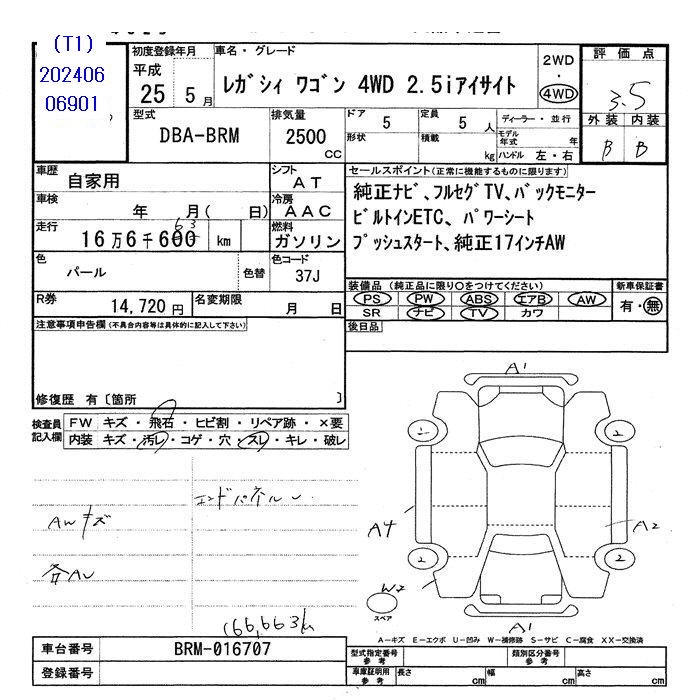 (T1)
202406
06901
初度登録年月
平成
25 5月
車名・グレード
レガシィ ワゴン 4WD 2.5iアイサイト
2WD
・
4WD
評価点
3.5
外装 内装
B B
型式
DBA-BRM
排気量
2500
CC
ドア 5
形状
定員 5 人
積載 kg
ディーラー・並行
モデル年式 年
ハンドル 左・右
車歴
自家用
シフト
AT
車検
年 月( 日)
冷房
AAC
走行
16万6千600 km
63
燃料
ガソリン
色
パール
色替
色コード
37J
R券
14,720円
名変期限
月 日
セールスポイント(正常に機能するものに限ります)
純正ナビ、フルセグTV、バックモニター
ビルトインETC、パワーシート
プッシュスタート、純正17インチAW
装備品(純正品に限り○をつけてください)
PS PW ABS エアB AW
SR ナビ TV カワ
新車保証書
有・無
後日品
注意事項申告欄(不具合内容等は具体的に記入して下さい)
修復歴 有〔箇所 〕
検査員
記入欄
FW キズ・飛石・ヒビ割・リペア跡・×要
内装 キズ・汚レ・コゲ・穴・スレ・キレ・破レ
エンドパネルU
AWキズ
各AU
166,663km
A1
2 2
A4 A2
2 2
W2
スペア
A1
A−キズ E−エクボ U−凹み W−補修跡 S−サビ C−腐食 XX−交換済
車台番号 BRM-016707
登録番号
型式指定番号
参考
類別区分番号
参考
車庫証明用
参考
長さ cm 幅 cm 高さ cm